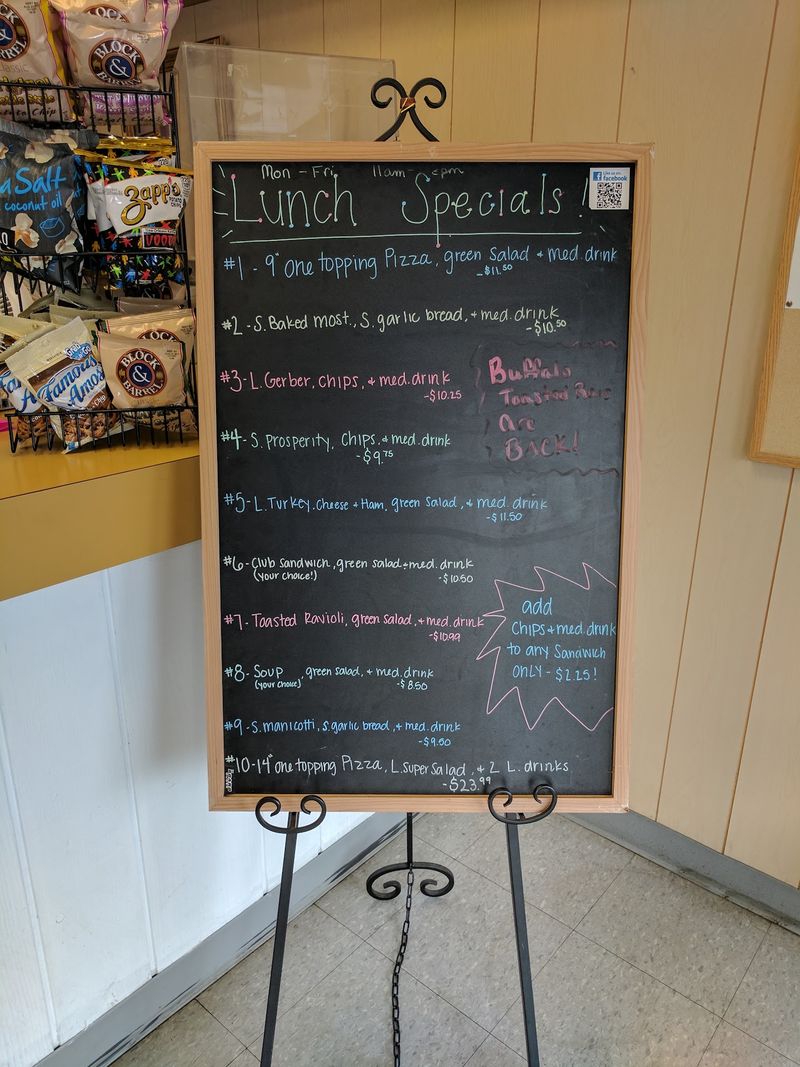 Mon - Fri 11am - pm
Lunch Specials!
Like us on
facebook
#1 - 9" one topping Pizza, green Salad + med. drink
- $11.50
#2 - S. Baked most., S. garlic bread, + med. drink
- $10.50
#3 - L. Gerber, chips, + med. drink
- $10.25
Buffalo
Toasted Ravs
Are
BACK!
#4 - S. Prosperity, Chips, + med. drink
- $9.75
#5 - L. Turkey, Cheese + Ham, green Salad, + med. drink
- $11.50
#6 - Club Sandwich, green salad + med. drink
(your choice!)
- $10.50
#7 - Toasted Ravioli, green salad, + med. drink
- $10.99
#8 - Soup, green salad, + med. drink
(your choice)
- $8.50
#9 - S. manicotti, s. garlic bread, + med. drink
- $9.50
#10 - 14" one topping Pizza, L. Super Salad, + 2 L. drinks
- $23.99
add
Chips + med. drink
to any Sandwich
only - $2.25!
BLOCK & BARREL
BLOCK &
Sea Salt
coconut oil
Zapp's
VOODOO
Famous Amos
BLOCK & BARREL